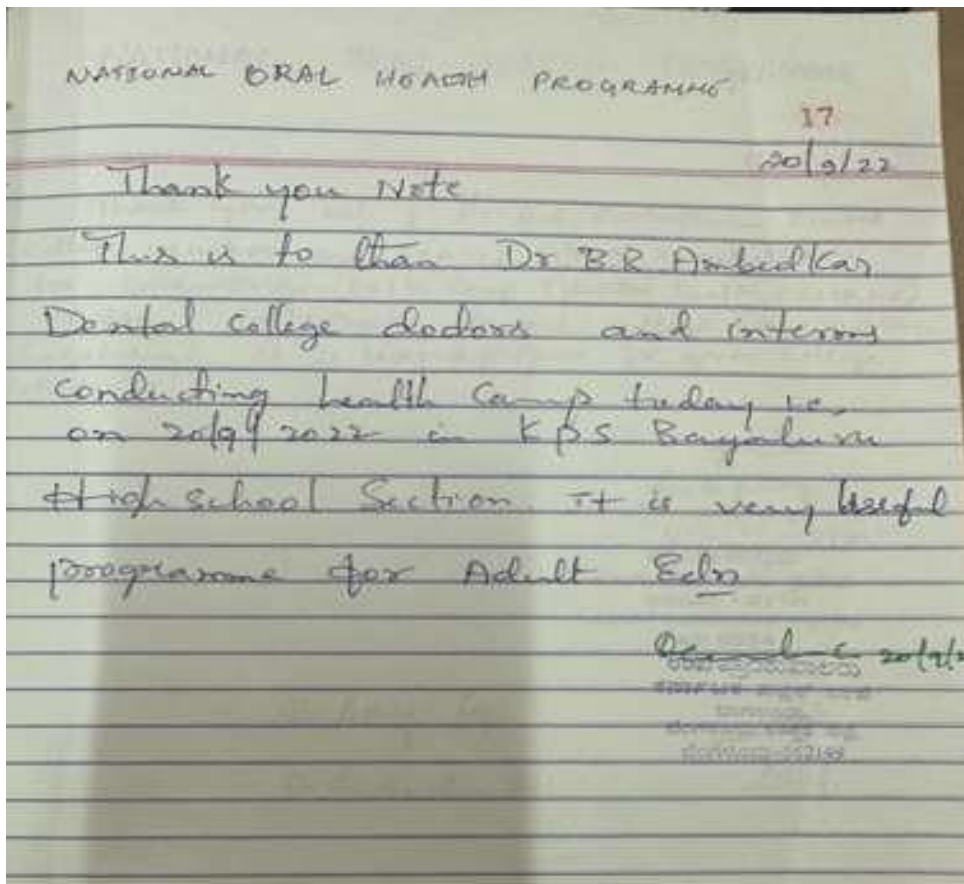 NATIONAL ORAL HEALTH PROGRAMME
17
20/9/22
Thank you Note
This is to than Dr B R Ambedkar
Dental College doctors and interns
conducting health Camp today ie,
on 20/9/2022 in KPS Bagaluru
High school Section. it is very Useful
programme for Adult Edn
20/9/2